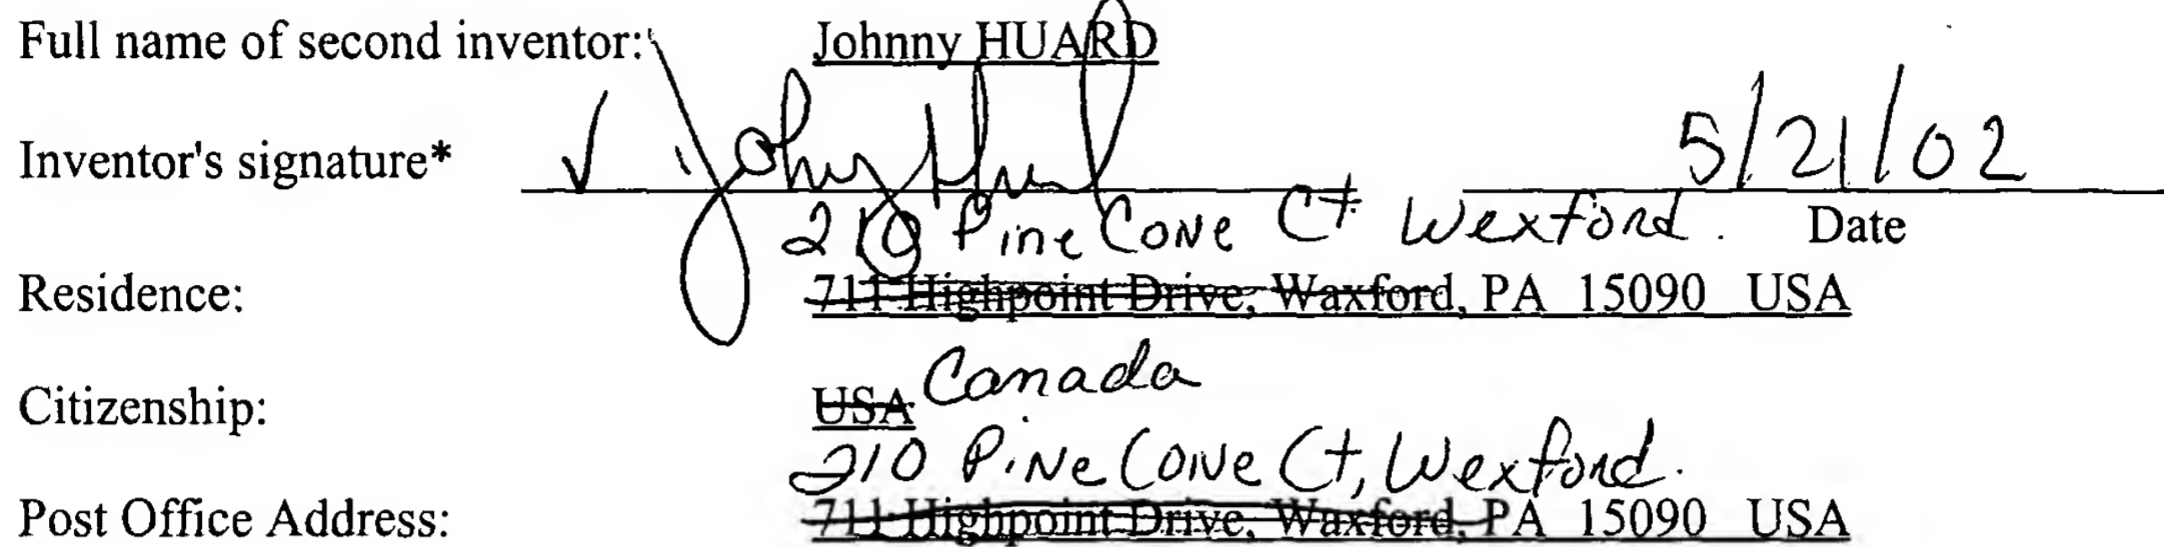 Full name of second inventor: Johnny HUARD
Inventor's signature* Johnny Huard 5/21/02
210 Pine Cone Ct Wexford. Date
Residence: 711 Highpoint Drive, Waxford, PA 15090 USA
Citizenship: USA Canada
210 Pine Cone Ct, Wexford.
Post Office Address: 711 Highpoint Drive, Waxford, PA 15090 USA